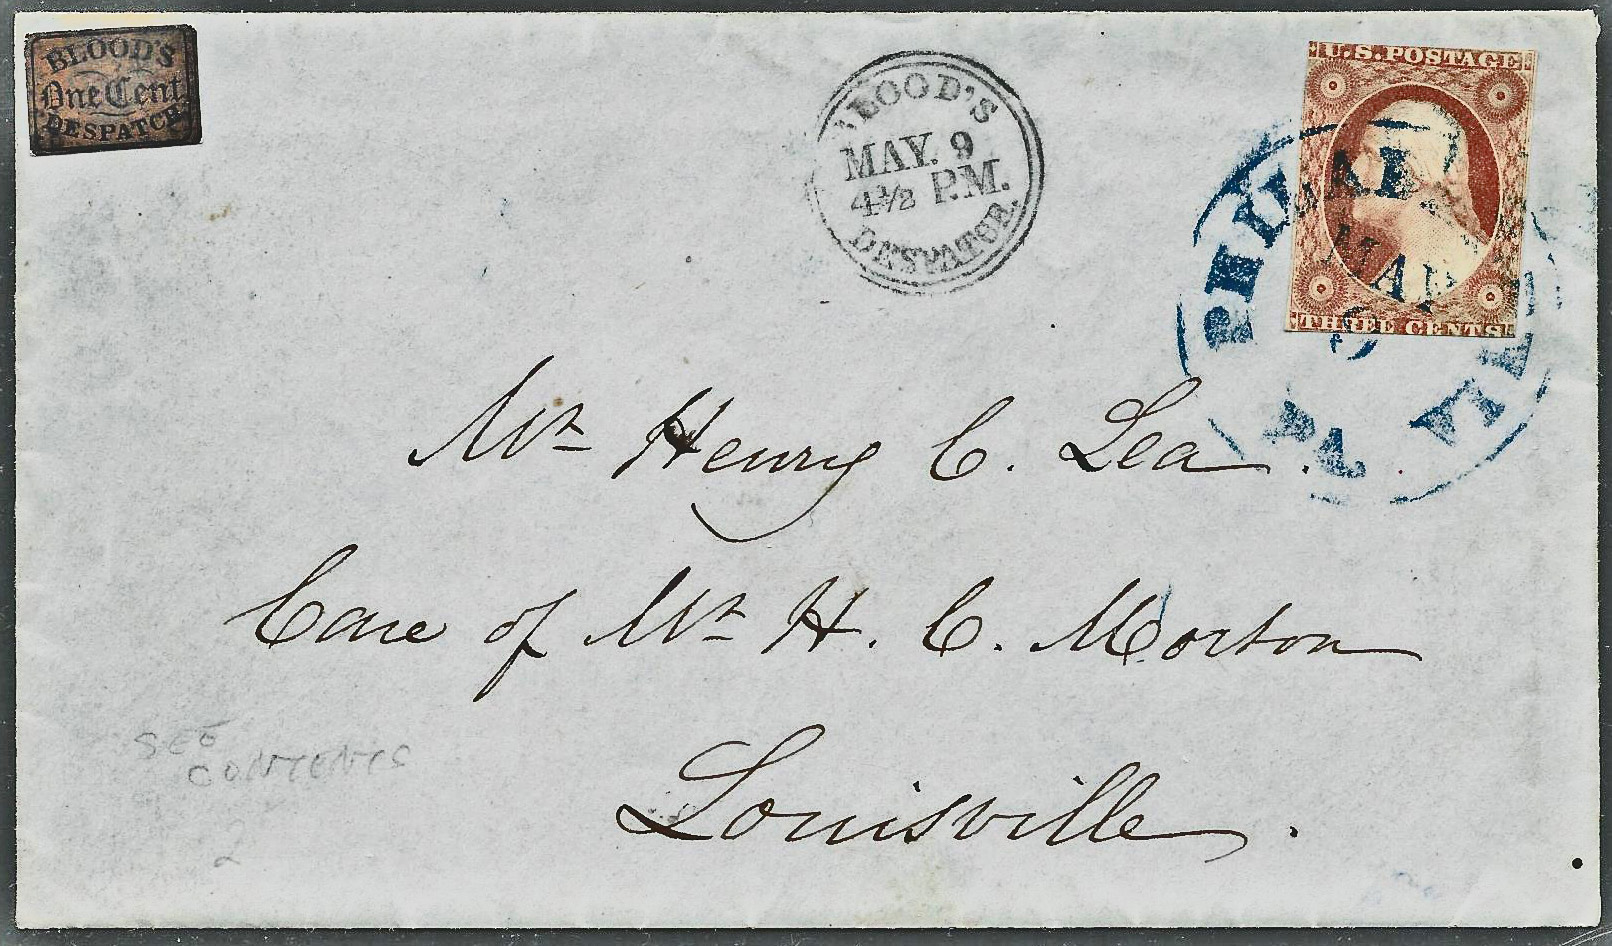 BLOOD'S
One Cent
DESPATCH
BLOOD'S
MAY. 9
4½ P.M.
DESPATCH.
U.S. POSTAGE
THREE CENTS
PHILADELPHIA
MAY
9
Pa
Mr Henry C. Lea.
Care of Mr H. C. Morton
Louisville.
SEE
CONTENTS
2